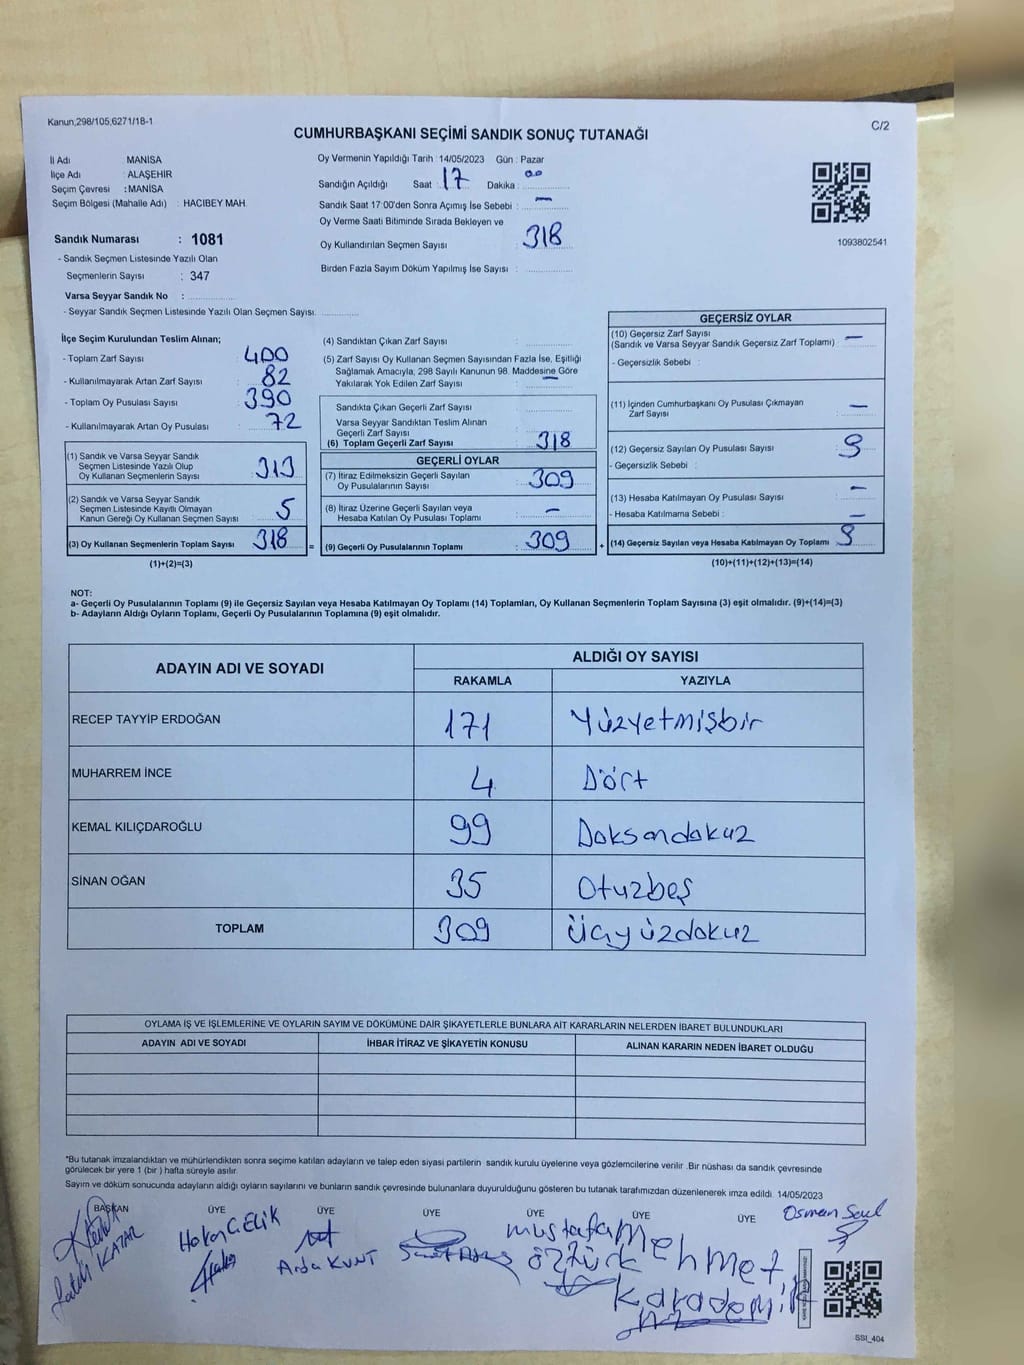 Kanun,298/105,6271/18-1
C/2
CUMHURBAŞKANI SEÇİMİ SANDIK SONUÇ TUTANAĞI
İl Adı : MANİSA
İlçe Adı : ALAŞEHİR
Seçim Çevresi : MANİSA
Seçim Bölgesi (Mahalle Adı) : HACIBEY MAH.
Sandık Numarası : 1081
- Sandık Seçmen Listesinde Yazılı Olan
Seçmenlerin Sayısı : 347
Varsa Seyyar Sandık No :
- Seyyar Sandık Seçmen Listesinde Yazılı Olan Seçmen Sayısı
Oy Vermenin Yapıldığı Tarih : 14/05/2023 Gün : Pazar
Sandığın Açıldığı Saat : 17 Dakika : 00
Sandık Saat 17:00'den Sonra Açımış İse Sebebi : —
Oy Verme Saati Bitiminde Sırada Bekleyen ve
Oy Kullandırılan Seçmen Sayısı : 318
Birden Fazla Sayım Döküm Yapılmış İse Sayısı :
1093802541
İlçe Seçim Kurulundan Teslim Alınan;
- Toplam Zarf Sayısı : 400
- Kullanılmayarak Artan Zarf Sayısı : 82
- Toplam Oy Pusulası Sayısı : 390
- Kullanılmayarak Artan Oy Pusulası : 72
(1) Sandık ve Varsa Seyyar Sandık
Seçmen Listesinde Yazılı Olup
Oy Kullanan Seçmenlerin Sayısı : 313
(2) Sandık ve Varsa Seyyar Sandık
Seçmen Listesinde Kayıtlı Olmayan
Kanun Gereği Oy Kullanan Seçmen Sayısı : 5
(3) Oy Kullanan Seçmenlerin Toplam Sayısı : 318
(1)+(2)=(3)
(4) Sandıktan Çıkan Zarf Sayısı :
(5) Zarf Sayısı Oy Kullanan Seçmen Sayısından Fazla İse, Eşitliği
Sağlamak Amacıyla, 298 Sayılı Kanunun 98. Maddesine Göre
Yakılarak Yok Edilen Zarf Sayısı : —
Sandıkta Çıkan Geçerli Zarf Sayısı :
Varsa Seyyar Sandıktan Teslim Alınan
Geçerli Zarf Sayısı
(6) Toplam Geçerli Zarf Sayısı : 318
GEÇERLİ OYLAR
(7) İtiraz Edilmeksizin Geçerli Sayılan
Oy Pusulalarının Sayısı : 309
(8) İtiraz Üzerine Geçerli Sayılan veya
Hesaba Katılan Oy Pusulası Toplamı : —
= (9) Geçerli Oy Pusulalarının Toplamı : 309 +
GEÇERSİZ OYLAR
(10) Geçersiz Zarf Sayısı
(Sandık ve Varsa Seyyar Sandık Geçersiz Zarf Toplamı) : —
- Geçersizlik Sebebi :
(11) İçinden Cumhurbaşkanı Oy Pusulası Çıkmayan
Zarf Sayısı : —
(12) Geçersiz Sayılan Oy Pusulası Sayısı : 9
- Geçersizlik Sebebi :
(13) Hesaba Katılmayan Oy Pusulası Sayısı : —
- Hesaba Katılmama Sebebi : —
(14) Geçersiz Sayılan veya Hesaba Katılmayan Oy Toplamı : 9
(10)+(11)+(12)+(13)=(14)
NOT:
a- Geçerli Oy Pusulalarının Toplamı (9) ile Geçersiz Sayılan veya Hesaba Katılmayan Oy Toplamı (14) Toplamları, Oy Kullanan Seçmenlerin Toplam Sayısına (3) eşit olmalıdır. (9)+(14)=(3)
b- Adayların Aldığı Oyların Toplamı, Geçerli Oy Pusulalarının Toplamına (9) eşit olmalıdır.
ADAYIN ADI VE SOYADI
ALDIĞI OY SAYISI
RAKAMLA YAZIYLA
RECEP TAYYİP ERDOĞAN 171 Yüzyetmişbir
MUHARREM İNCE 4 Dört
KEMAL KILIÇDAROĞLU 99 Doksandokuz
SİNAN OĞAN 35 Otuzbeş
TOPLAM 309 Üçyüzdokuz
OYLAMA İŞ VE İŞLEMLERİNE VE OYLARIN SAYIM VE DÖKÜMÜNE DAİR ŞİKAYETLERLE BUNLARA AİT KARARLARIN NELERDEN İBARET BULUNDUKLARI
ADAYIN ADI VE SOYADI İHBAR İTİRAZ VE ŞİKAYETİN KONUSU ALINAN KARARIN NEDEN İBARET OLDUĞU
*Bu tutanak imzalandıktan ve mühürlendikten sonra seçime katılan adayların ve talep eden siyasi partilerin sandık kurulu üyelerine veya gözlemcilerine verilir .Bir nüshası da sandık çevresinde
görülecek bir yere 1 (bir ) hafta süreyle asılır.
Sayım ve döküm sonucunda adayların aldığı oyların sayılarını ve bunların sandık çevresinde bulunanlara duyurulduğunu gösteren bu tutanak tarafımızdan düzenlenerek imza edildi. 14/05/2023
BAŞKAN ÜYE ÜYE ÜYE ÜYE ÜYE ÜYE
Fatih KATAR
Hakan ÇELİK
Arda KUNT
Mustafa
Öztürk
Mehmet
Karademir
Osman
SSI_404